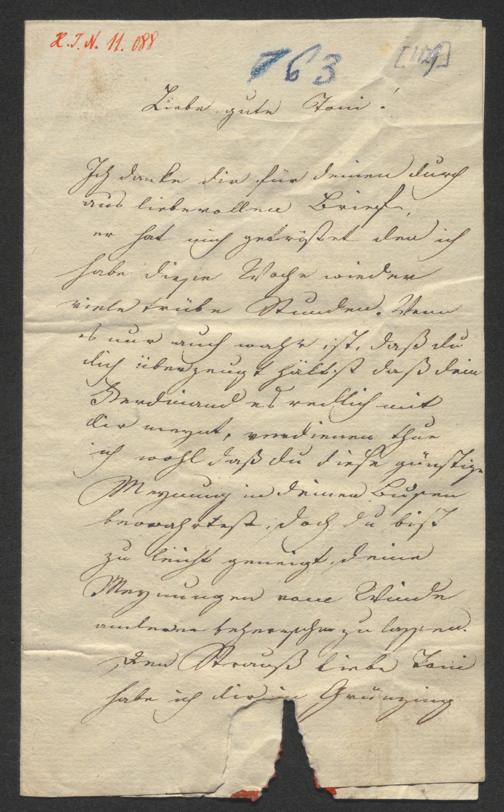 H. I. N. 11.088
763
[119]
Liebe gute Toni!
Ich danke dir für deinen durch
aus liebevollen Brief,
er hat mich getröstet den ich
habe diese Woche wieder
viele trübe Stunden. Wenn
es nur auch wahr ist, daß du
dich überzeugt hältst daß dein
Ferdinand es redlich mit
dir meynt, verdienen thue
ich wohl daß du diese günstige
Meynung in deinen Busen
bewahrtest, doch du bist
zu leicht geneigt deine
Meynungen vom Winde
anderer beherrschen zu lassen.
Den Strauß liebe Toni
habe ich dir in Grünzing